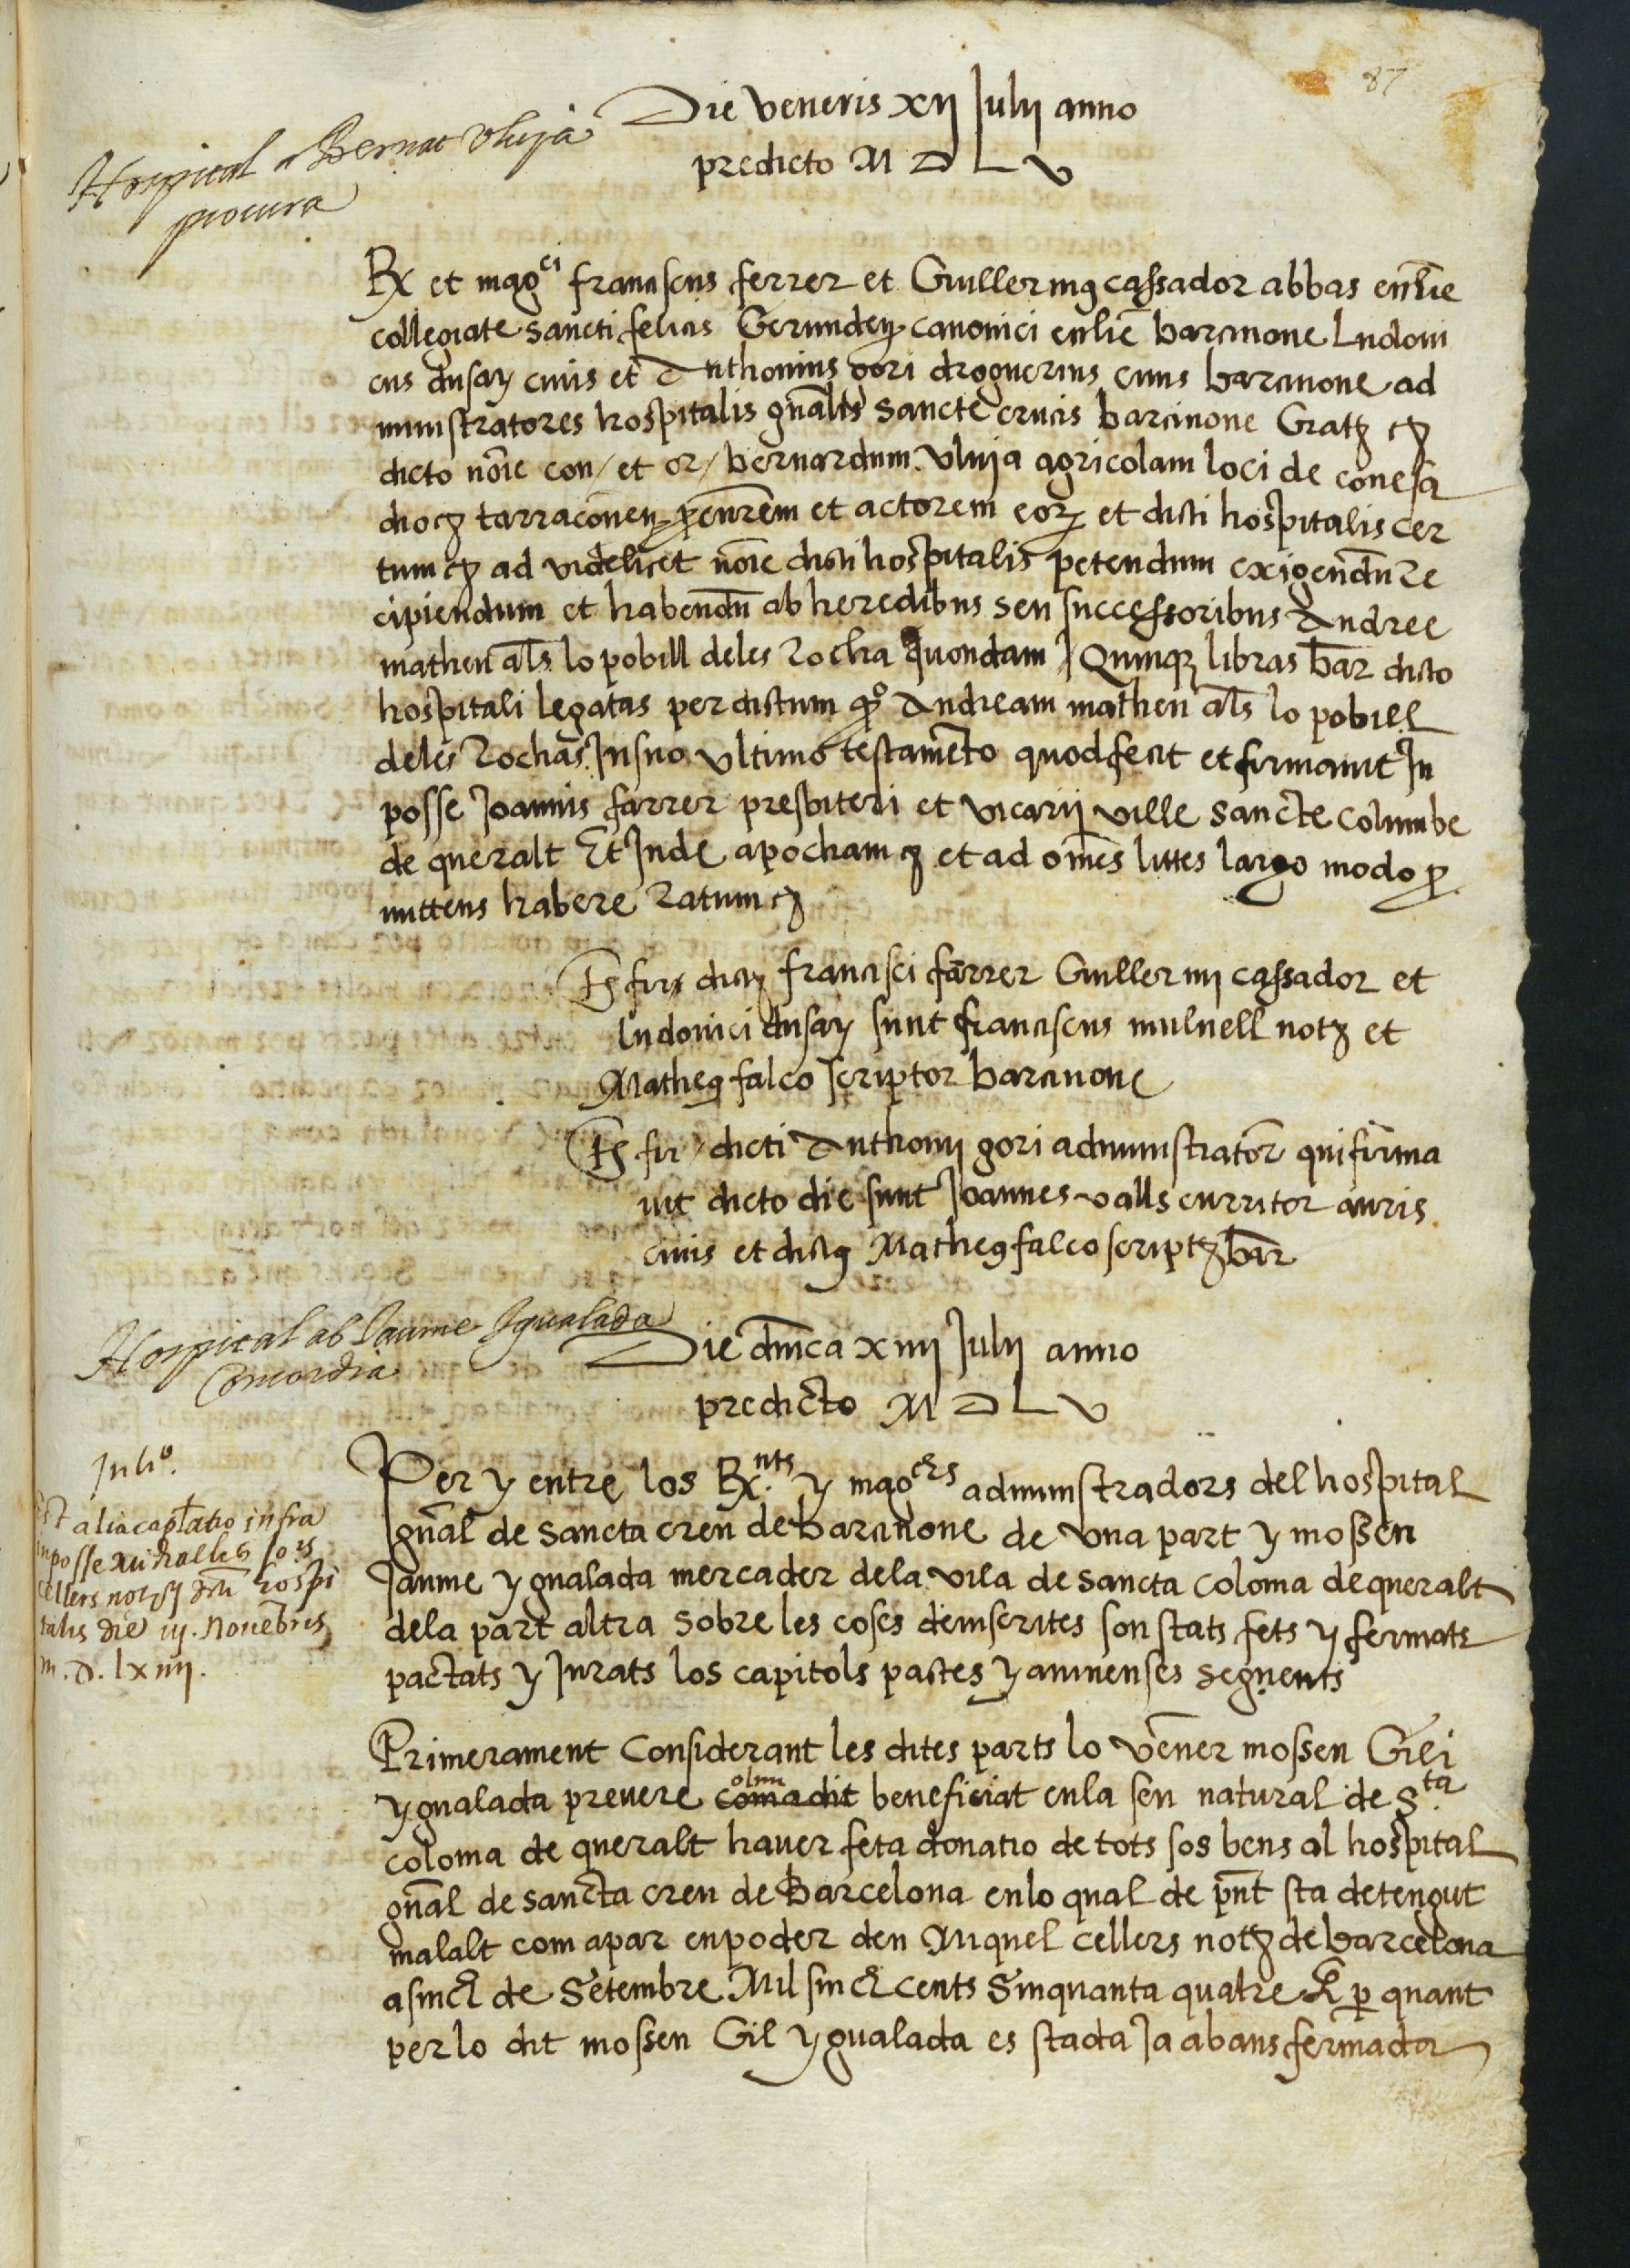 87
Die veneris xij Julij anno
predicto M D L v
Hospital a Bernat Vluja
procura
Rx et mag.ci franciscus ferrer et Guillermus cassador abbas eccl̄ie
collegiate sancti felicis Gerunden̄ canonici eccl̄ie barcinone Ludoui
cus dusay ciuis et Anthonius gori droguerius ciuis barcinone ad
ministratores hospitalis gn̄alis sancte crucis barcinone Gratȝ cȝ
dicto nōie con / et or / bernardum vluja agricolam loci de conesa
diocȝ tarraconen̄ p̄curēm et actorem eorꝝ et dicti hospitalis cer
tum cȝ ad videlicet nōie dicti hospitalis petendum exigendū re
cipiendum et habendū ab heredibus seu successoribus Andree
matheu al̄s lo pobill deles rocha quondam / Quinqȝ libras bar̄ dicto
hospitali legatas per dictum qº Andream matheu al̄s lo pobill
deles rochas Insuo vltimo testamēto quod fecit et firmauit In
posse Joannis farrer presbiteri et vicarij ville sancte columbe
de queralt Et Inde apocham cȝ et ad om̄es littes largo modo ꝓ
mittens habere ratum cȝ
Ts fir dictȝ francisci fārrer Guillermi cassador et
ludouici dusay sunt franciscus mulnell notȝ et
Matheus falco scriptor barcinone
Ts fir / dicti Anthonij gori administrator̄ qui firma
uit dicto die sunt Joannes valls curritor auris
ciuis et dictus Matheus falco scriptȝ bar̄
Hospital ab Jaume Igualada
Concordia
Die dn̄ica xiiij Julij anno
predicto M D L v
Juliº.
Est alia cap̄latio infra
inposse michaelis Jo.is
cellers notȝ dcti hospi
talis die iij. Nouēbris
m. d. lxiiij.
Per y entre los Rx.nts y mag.chs administradors del hospital
gn̄al de sancta creu de barcinone de vna part y mossen
Jaume ygualada mercader dela vila de sancta coloma de queralt
dela part altra sobre les coses deiuscrites son stats fets y fermats
pactats y Jurats los capitols pactes y auinenses seguents
Primerament Considerant les dites parts lo vēner mossen Gili
ygualada preuere comadit olim beneficiat enla seu natural de S.ta
coloma de queralt hauer feta donatio de tots sos bens al hospital
gn̄al de sancta creu de Barcelona enlo qual de pn̄t sta detengut
malalt com apar enpoder den Miquel cellers notȝ de barcelona
a sinch de Setembre Mil sinch cents Sinquanta quatre E ꝑ quant
per lo dit mossen Gil ygualada es stada Ja abans fermada